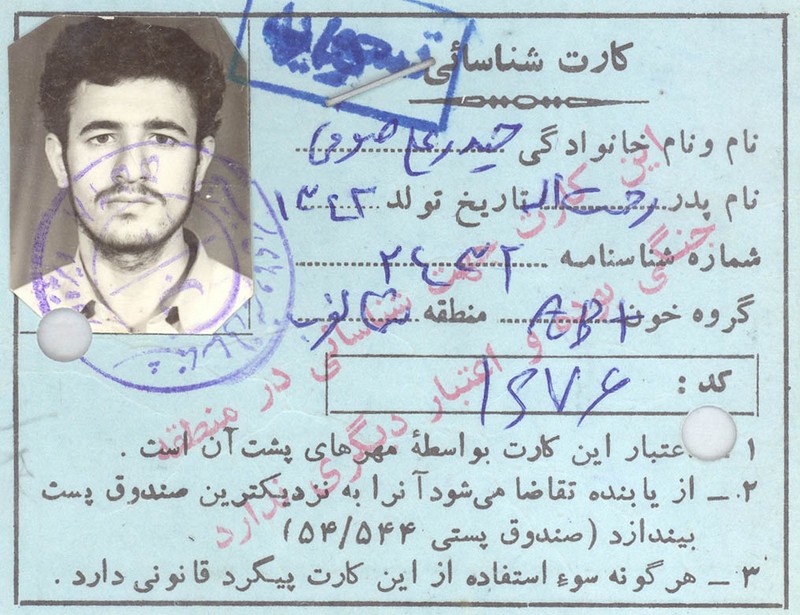 کارت شناسائی
نام و نام خانوادگی حیدرعلی صومی
نام پدر رحمت اله تاریخ تولد ۱۳۴۲
شماره شناسنامه ۲۴۳۲
گروه خون AB+ منطقه
کد : ۱۴۷۶
۱ ـ اعتبار این کارت بواسطهٔ مهرهای پشت آن است .
۲ ـ از یابنده تقاضا می‌شود آنرا به نزدیکترین صندوق پست
بیندازد (صندوق پستی ۵۴/۵۴۴)
۳ ـ هرگونه سوء استفاده از این کارت پیگرد قانونی دارد .
این کارت جهت شناسائی در منطقه
جنگی بوده و اعتبار دیگری ندارد